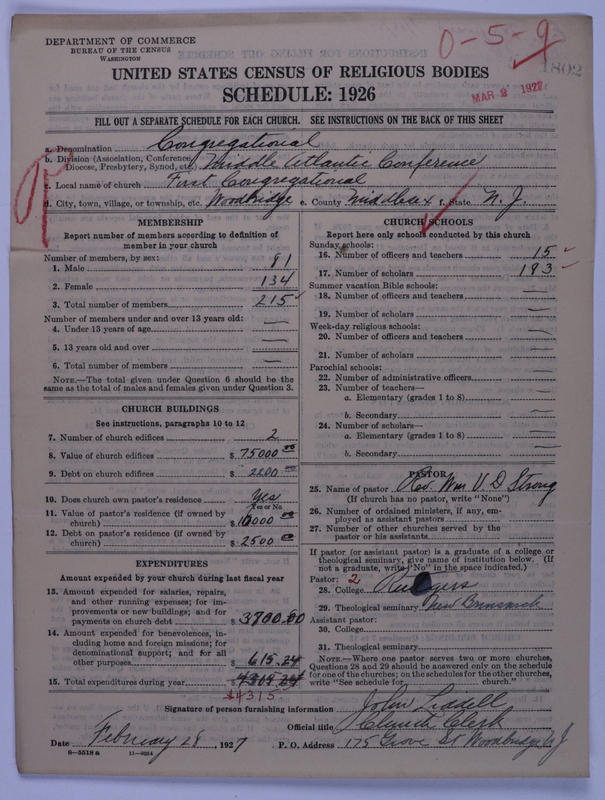 DEPARTMENT OF COMMERCE
BUREAU OF THE CENSUS
WASHINGTON
0-5-9
1802
MAR 3 1927
UNITED STATES CENSUS OF RELIGIOUS BODIES
SCHEDULE: 1926
FILL OUT A SEPARATE SCHEDULE FOR EACH CHURCH. SEE INSTRUCTIONS ON THE BACK OF THIS SHEET
a. Denomination Congregational
b. Division (Association, Conference, Diocese, Presbytery, Synod, etc. Middle Atlantic Conference
c. Local name of church First Congregational
d. City, town, village, or township, etc. Woodbridge e. County Middlesex f. State N. J.
MEMBERSHIP
Report number of members according to definition of
member in your church
Number of members, by sex:
1. Male 81
2. Female 134
3. Total number of members 215
Number of members under and over 13 years old:
4. Under 13 years of age —
5. 13 years old and over —
6. Total number of members —
NOTE.—The total given under Question 6 should be the
same as the total of males and females given under Question 3.
CHURCH BUILDINGS
See instructions, paragraphs 10 to 12
7. Number of church edifices 2
8. Value of church edifices $ 75000 00
9. Debt on church edifices $ 2200 00
10. Does church own pastor's residence Yes
Yes or No
11. Value of pastor's residence (if owned by
church) $ 10000 00
12. Debt on pastor's residence (if owned by
church) $ 2500 00
EXPENDITURES
Amount expended by your church during last fiscal year
13. Amount expended for salaries, repairs,
and other running expenses; for im-
provements or new buildings; and for
payments on church debt $ 3700.00
14. Amount expended for benevolences, in-
cluding home and foreign missions; for
denominational support; and for all
other purposes $ 615.24
15. Total expenditures during year
$4315.
CHURCH SCHOOLS
Report here only schools conducted by this church
Sunday schools:
16. Number of officers and teachers 15
17. Number of scholars 193
Summer vacation Bible schools:
18. Number of officers and teachers —
19. Number of scholars —
Week-day religious schools:
20. Number of officers and teachers —
21. Number of scholars —
Parochial schools:
22. Number of administrative officers —
23. Number of teachers—
a. Elementary (grades 1 to 8) —
b. Secondary —
24. Number of scholars—
a. Elementary (grades 1 to 8) —
b. Secondary —
PASTOR
25. Name of pastor Rev. Wm V. D Strong
(If church has no pastor, write "None")
26. Number of ordained ministers, if any, em-
ployed as assistant pastors
27. Number of other churches served by the
pastor or his assistants
If pastor (or assistant pastor) is a graduate of a college or
theological seminary, give name of institution below. (If
not a graduate, write "No" in the space indicated.)
Pastor: 2
28. College Rutgers
29. Theological seminary New Brunswick
Assistant pastor:
30. College
31. Theological seminary
NOTE.—Where one pastor serves two or more churches,
Questions 28 and 29 should be answered only on the schedule
for one of the churches; on the schedules for the other churches,
write "See schedule for church."
Signature of person furnishing information John Liddell
Official title Church Clerk
Date February 28, 1927 P. O. Address 175 Grove St Woodbridge N J
8-5518a 11-9254